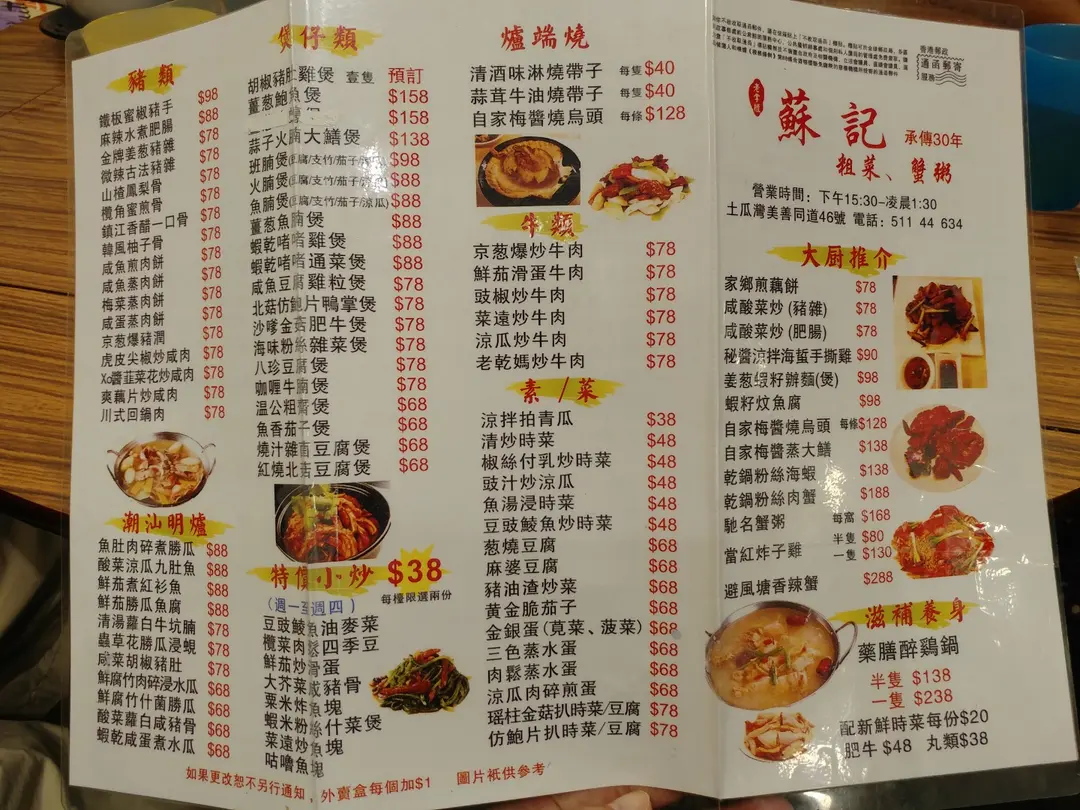 豬類
鐵板蜜椒豬手 $98
麻辣水煮肥腸 $88
金牌姜葱豬雜 $78
微辣古法豬雜 $78
山楂鳳梨骨 $78
欖角蜜煎骨 $78
鎮江香醋一口骨 $78
韓風柚子骨 $78
咸魚煎肉餅 $78
咸魚蒸肉餅 $78
梅菜蒸肉餅 $78
咸蛋蒸肉餅 $78
京葱爆豬潤 $78
虎皮尖椒炒咸肉 $78
Xo醬韮菜花炒咸肉 $78
爽藕片炒咸肉 $78
川式回鍋肉 $78
潮汕明爐
魚肚肉碎煮勝瓜 $88
酸菜涼瓜九肚魚 $88
鮮茄煮紅衫魚 $88
鮮茄勝瓜魚腐 $88
清湯蘿白牛坑腩 $78
蟲草花勝瓜浸蜆 $78
咸菜胡椒豬肚 $78
鮮腐竹肉碎浸水瓜 $68
鮮腐竹什菌勝瓜 $68
酸菜蘿白咸豬骨 $68
蝦乾咸蛋煮水瓜 $68
煲仔類
胡椒豬肚雞煲 壹隻 預訂
薑葱鮑魚煲 $158
煲 $158
蒜子火腩大鱔煲 $138
班腩煲(豆腐/支竹/茄子/) $98
火腩煲(豆腐/支竹/茄子/) $88
魚腩煲(豆腐/支竹/茄子/涼瓜) $88
薑葱魚腩煲 $88
蝦乾啫啫雞煲 $88
蝦乾啫啫通菜煲 $88
咸魚豆腐雞粒煲 $78
北菇仿鮑片鴨掌煲 $78
沙嗲金菇肥牛煲 $78
海味粉絲雜菜煲 $78
八珍豆腐煲 $78
咖喱牛腩煲 $78
温公粗齋煲 $68
魚香茄子煲 $68
燒汁雜菌豆腐煲 $68
紅燒北菇豆腐煲 $68
特價小炒 $38
(週一至週四)
每檯限選兩份
豆豉鯪魚油麥菜
欖菜肉鬆四季豆
鮮茄炒滑蛋
大芥菜咸豬骨
粟米炸魚塊
蝦米粉絲什菜煲
菜遠炒魚塊
咕嚕魚塊
爐端燒
清酒味淋燒帶子 每隻$40
蒜茸牛油燒帶子 每隻$40
自家梅醬燒烏頭 每條$128
牛類
京葱爆炒牛肉 $78
鮮茄滑蛋牛肉 $78
豉椒炒牛肉 $78
菜遠炒牛肉 $78
涼瓜炒牛肉 $78
老乾媽炒牛肉 $78
素/菜
涼拌拍青瓜 $38
清炒時菜 $48
椒絲付乳炒時菜 $48
豉汁炒涼瓜 $48
魚湯浸時菜 $48
豆豉鯪魚炒時菜 $48
葱燒豆腐 $68
麻婆豆腐 $68
豬油渣炒菜 $68
黃金脆茄子 $68
金銀蛋(莧菜、菠菜) $68
三色蒸水蛋 $68
肉鬆蒸水蛋 $68
涼瓜肉碎煎蛋 $68
瑤柱金菇扒時菜/豆腐 $78
仿鮑片扒時菜/豆腐 $78
如果更改恕不另行通知，外賣盒每個加$1 圖片祇供參考
香港郵政
通函郵寄
服務
老字號
蘇記
承傳30年
粗菜、蟹粥
營業時間：下午15:30-凌晨1:30
土瓜灣美善同道46號 電話：511 44 634
大厨推介
家鄉煎藕餅 $78
咸酸菜炒(豬雜) $78
咸酸菜炒(肥腸) $78
秘醬涼拌海蜇手撕雞 $90
姜葱蝦籽辦麵(煲) $98
蝦籽炆魚腐 $98
自家梅醬燒烏頭 每條$128
自家梅醬蒸大鱔 $138
乾鍋粉絲海蝦 $138
乾鍋粉絲肉蟹 $188
馳名蟹粥 每窩 $168
當紅炸子雞 半隻 $80
一隻 $130
避風塘香辣蟹 $288
滋補養身
藥膳醉鷄鍋
半隻 $138
一隻 $238
配新鮮時菜每份$20
肥牛 $48 丸類$38